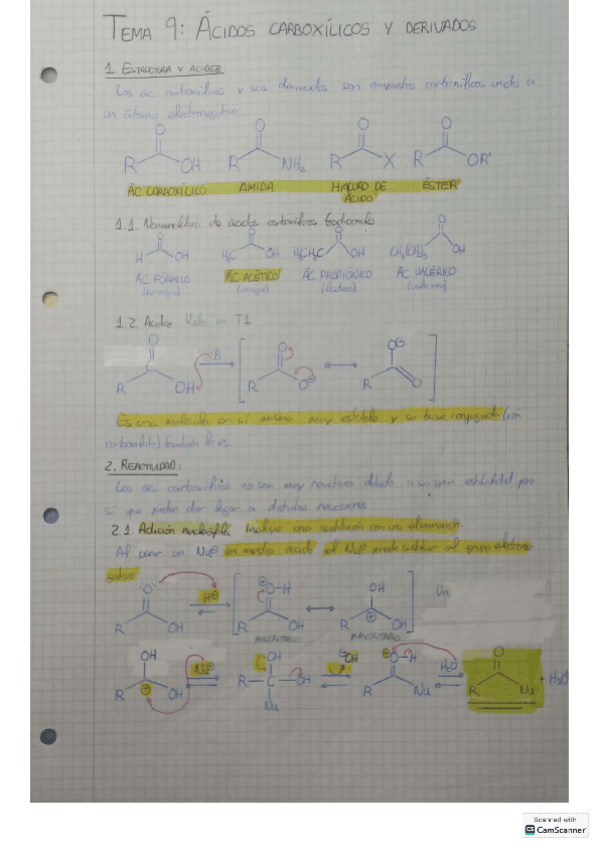 TEMA 9: ÁCIDOS CARBOXÍLICOS Y DERIVADOS
1. ESTRUCTURA Y ACIDEZ:
Los ac. carboxílicos y sus derivados son compuestos carbonílicos unidos a
un átomo electronegativo.
O O O O
R OH R NH₂ R X R OR'
ÁC CARBOXÍLICO AMIDA HALURO DE ÁCIDO ÉSTER
1.1. Nomenclatura de ácidos carboxílicos tradicionales
O O O O
H OH H₃C OH H₃CH₂C OH CH₃(CH₂)₃ OH
ÁC FÓRMICO ÁC ACÉTICO ÁC PROPIÓNICO ÁC VALÉRICO
1.2. Acidez Visto en T1
O :B O O⊖
R OH R O⊖ R O
Es una molécula en sí misma muy estable y su base conjugada (ión
carboxilato) también lo es.
2. REACTIVIDAD:
Los ac. carboxílicos no son muy reactivos debido a su gran estabilidad, pero
sí que pueden dar lugar a distintas reacciones.
2.1. Adición nucleófila Incluye una sustitución con una eliminación.
Al usar un Nu⊖ en medio ácido el Nu⊖ puede sustituir al grupo
O H⊕ ⊕O-H OH Un
R OH R OH R ⊕ OH
MAYORITARIO
OH Nu⊖ OH OH ⊕O-H H₂O O
R ⊕ OH R-C-OH R Nu R Nu + H₃O
Nu
Scanned with
CamScanner